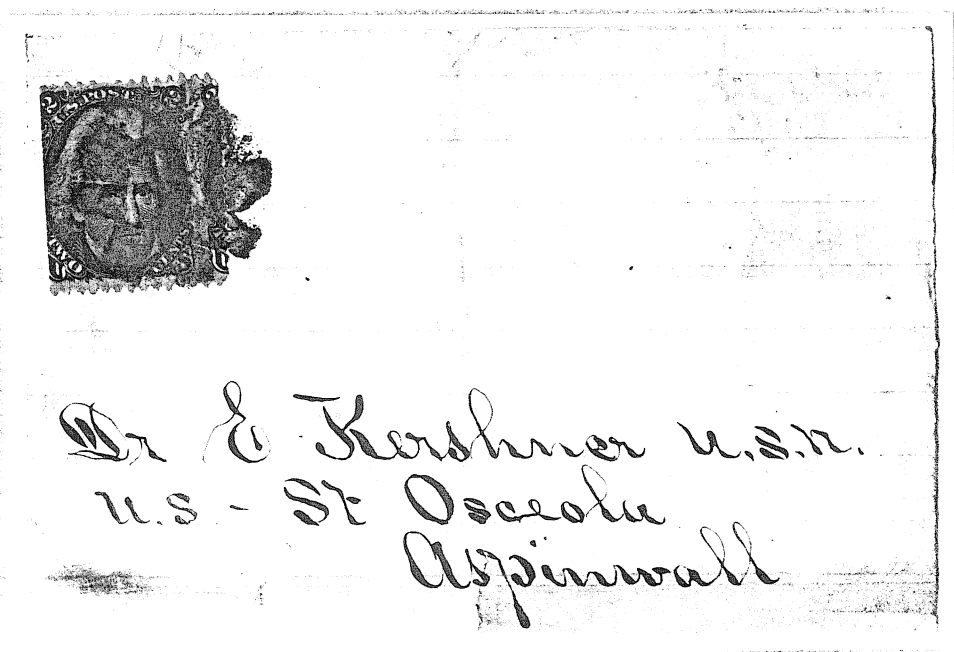 U.S. POST
TWO CENTS
Dr E Kershner U.S.N.
U.S - St Osceola
Aspinwall